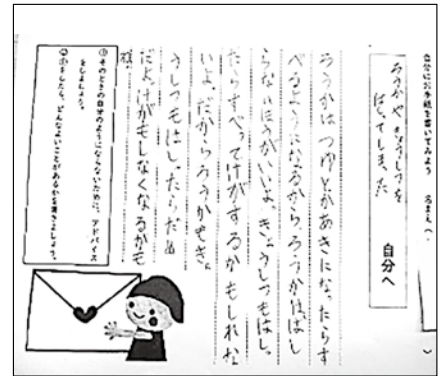 自分にお手紙を書いてみよう
ろうかやきょうしつを
はしってしまった
自分へ
ろうかはつゆとかあきになったらす
べるようになるからろうかははし
らないほうがいいよ。きょうしつもはし
たらすべってけがするかもしれな
いよ。だからろうかもき
うしつもはしったらだめ
だよ。けがもしなくなるかも
①そのときの自分のようにならないために、アドバイス
をしましょう。
②①をしたら、どんなよいことがあるかを書きましょう。